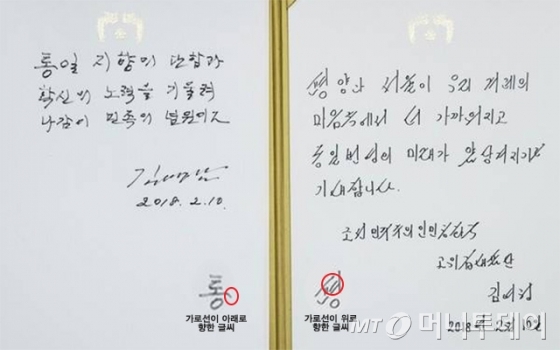 통일 지향의 단합과
확신의 노력을 기울려
나감이 민족의 념원이오
김영남
2018. 2. 10.
통
가로선이 아래로
향한 글씨
평양과 서울이 우리 겨레의
마음속에서 더 가까워지고
통일번영의 미래가 앞당겨지기를
기대합니다.
조선민주주의인민공화국
고위급대표단
김여정
2018년 2월 10일
평
가로선이 위로
향한 글씨
MT 머니투데이